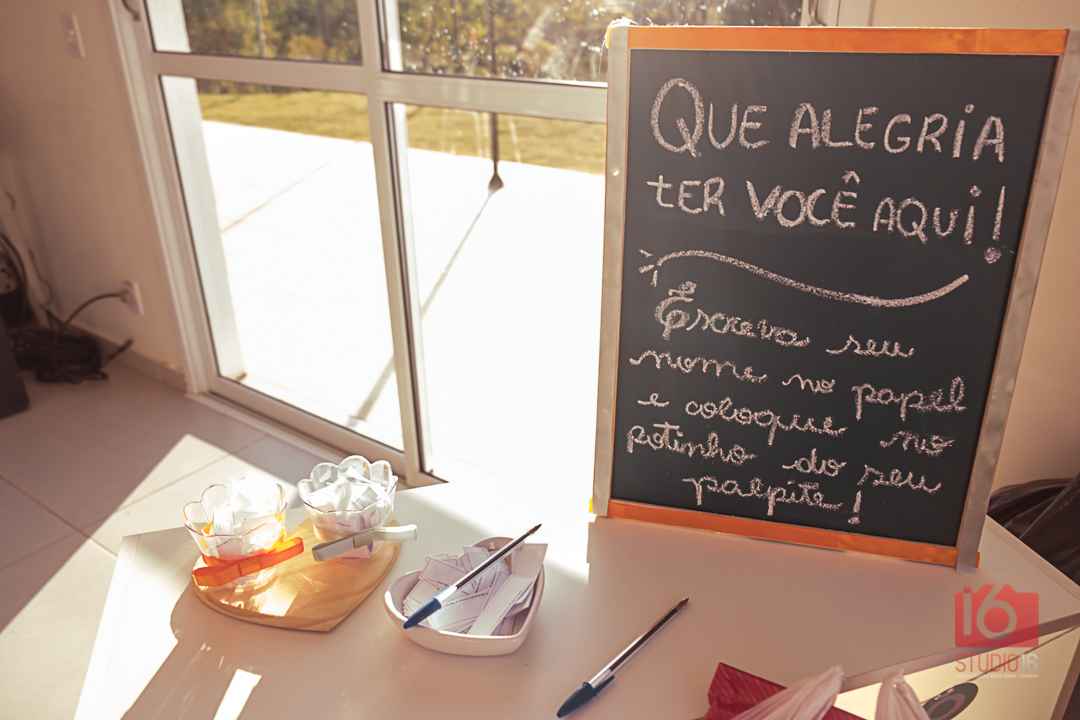 QUE ALEGRIA
TER VOCÊ AQUI!
Escreva seu
nome no papel
e coloque no
potinho do seu
palpite!
i6
STUDIO i6